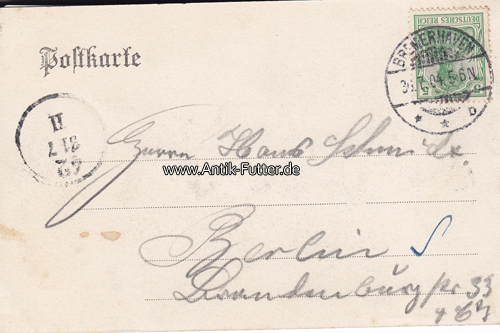 Postkarte
DEUTSCHES REICH
5
BREMERHAVEN
04.5-6N.
* * D
31 7
II
Herrn Hans Schmidt.
www.Antik-Futter.de
Berlin
Brandenburgstr 33